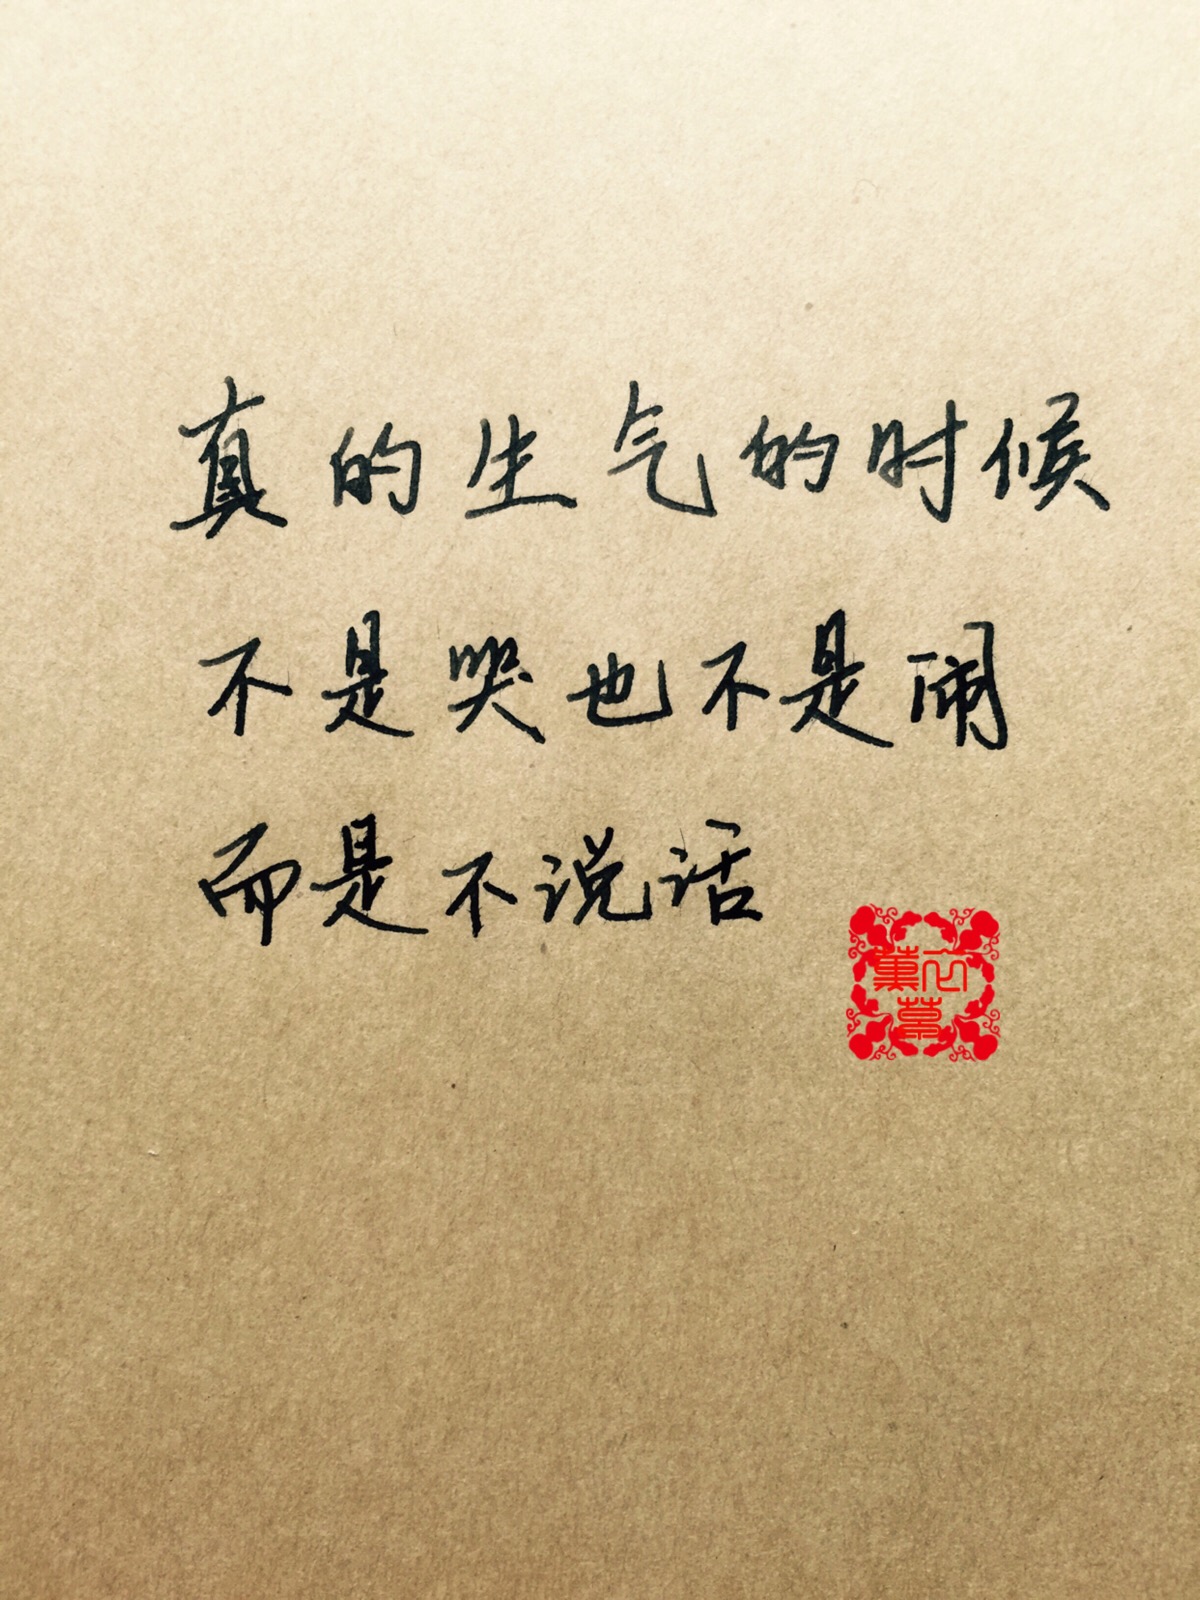 真的生气的时候
不是哭也不是闹
而是不说话